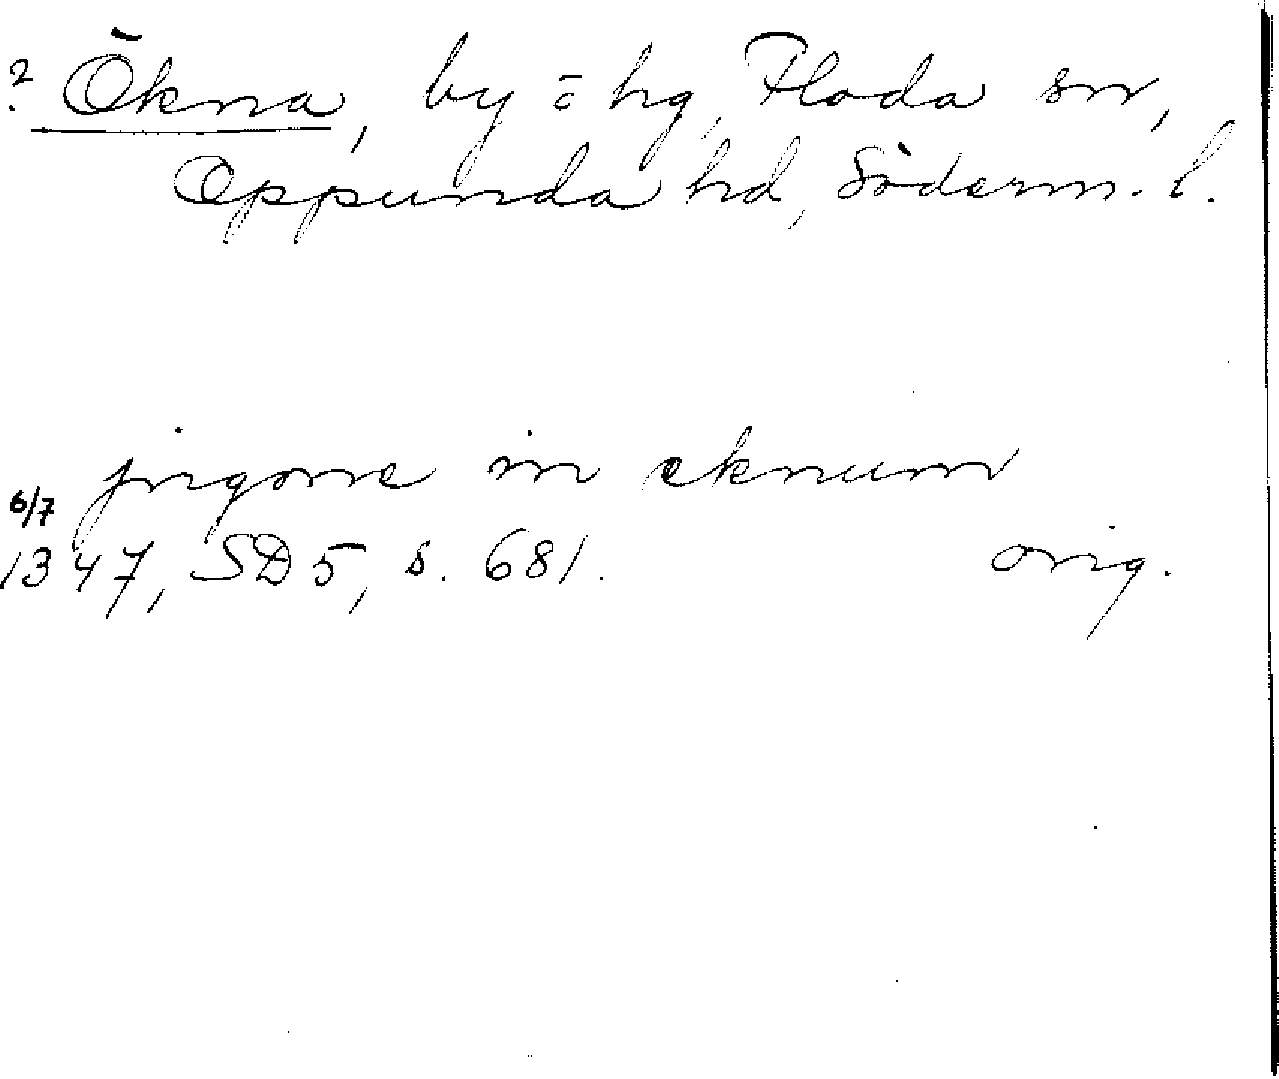 ? Ökna, by o hg, Floda sn,
Oppunda hd, Söderm. l.
jngone in eknum
6/7
1347, SD 5, s. 681.
orig.